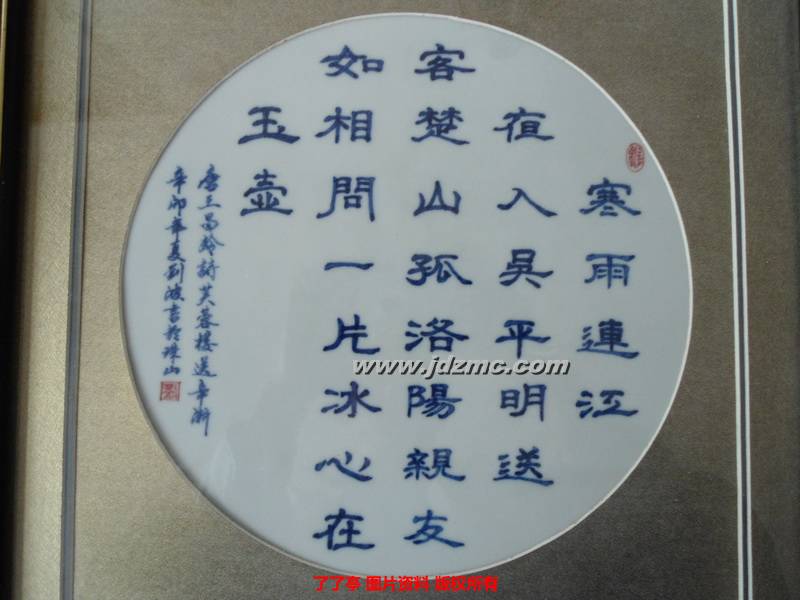 寒雨連江
夜入吳平明送
客楚山孤洛陽親友
如相問一片冰心在
玉壺
唐王昌龄詩芙蓉樓送辛漸
辛卯年夏刘波書於珠山
www.jdzmc.com
了了亭 图片资料 版权所有